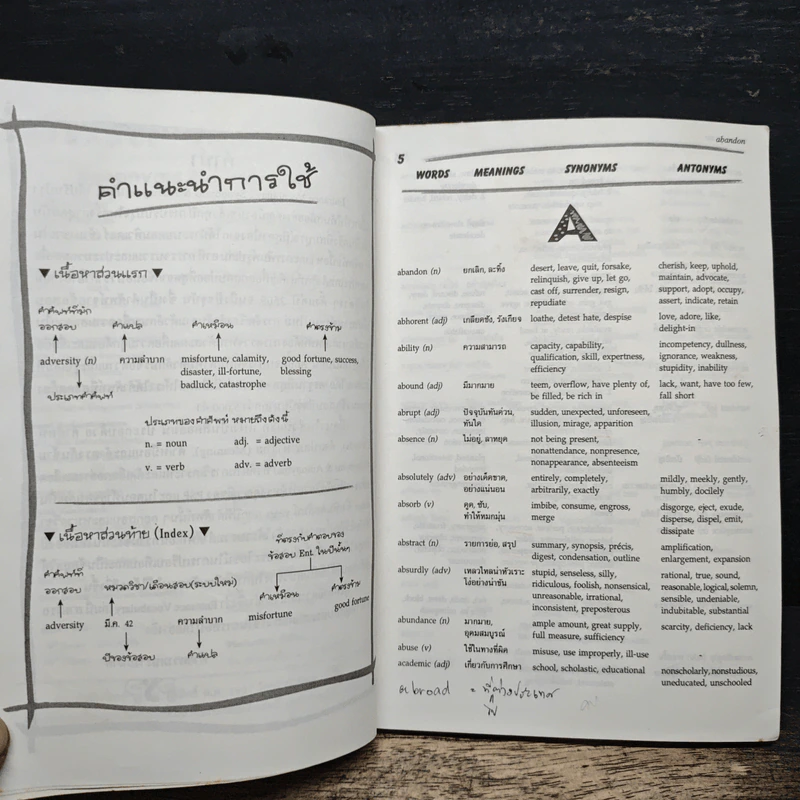 คำแนะนำการใช้
▼ เนื้อหาส่วนแรก ▼
คำศัพท์ที่มัก
ออกสอบ คำแปล คำเหมือน คำตรงข้าม
adversity (n) ความลำบาก misfortune, calamity, good fortune, success,
disaster, ill-fortune, blessing
badluck, catastrophe
ประเภทคำศัพท์
ประเภทของคำศัพท์ หมายถึงดังนี้
n. = noun adj. = adjective
v. = verb adv. = adverb
▼ เนื้อหาส่วนท้าย (Index) ▼
ที่ตรงกับคำตอบของ
ข้อสอบ Ent. ในปีนั้นๆ
คำศัพท์ที่
ออกสอบ หมวดวิชา/เดือนสอบ(ระบบใหม่)
คำเหมือน คำตรงข้าม
adversity มี.ค. 42 ความลำบาก misfortune good fortune
ปีของข้อสอบ คำแปล
abandon
5
WORDS MEANINGS SYNONYMS ANTONYMS
A
abandon (n) ยกเลิก, ละทิ้ง desert, leave, quit, forsake, cherish, keep, uphold,
relinquish, give up, let go, maintain, advocate,
cast off, surrender, resign, support, adopt, occupy,
repudiate assert, indicate, retain
abhorrent (adj) เกลียดชัง, รังเกียจ loathe, detest hate, despise love, adore, like,
delight-in
ability (n) ความสามารถ capacity, capability, incompetency, dullness,
qualification, skill, expertness, ignorance, weakness,
efficiency stupidity, inability
abound (adj) มีมากมาย teem, overflow, have plenty of, lack, want, have too few,
be filled, be rich in fall short
abrupt (adj) ปัจจุบันทันด่วน, sudden, unexpected, unforeseen,
ทันใด illusion, mirage, apparition
absence (n) ไม่อยู่, ลาหยุด not being present,
nonattendance, nonpresence,
nonappearance, absenteeism
absolutely (adv) อย่างเด็ดขาด, entirely, completely, mildly, meekly, gently,
อย่างแน่นอน arbitrarily, exactly humbly, docilely
absorb (v) ดูด, ซับ, imbibe, consume, engross, disgorge, eject, exude,
ทำให้หมกมุ่น merge disperse, dispel, emit,
dissipate
abstract (n) รายการย่อ, สรุป summary, synopsis, précis, amplification,
digest, condensation, outline enlargement, expansion
absurdly (adv) เหลวไหลน่าหัวเราะ stupid, senseless, silly, rational, true, sound,
โง่อย่างน่าขัน ridiculous, foolish, nonsensical, reasonable, logical, solemn,
unreasonable, irrational, sensible, undeniable,
inconsistent, preposterous indubitable, substantial
abundance (n) มากมาย, ample amount, great supply, scarcity, deficiency, lack
อุดมสมบูรณ์ full measure, sufficiency
abuse (v) ใช้ในทางที่ผิด misuse, use improperly, ill-use
academic (adj) เกี่ยวกับการศึกษา school, scholastic, educational nonscholarly, nonstudious,
uneducated, unschooled
abroad = ที่ต่างประเทศ